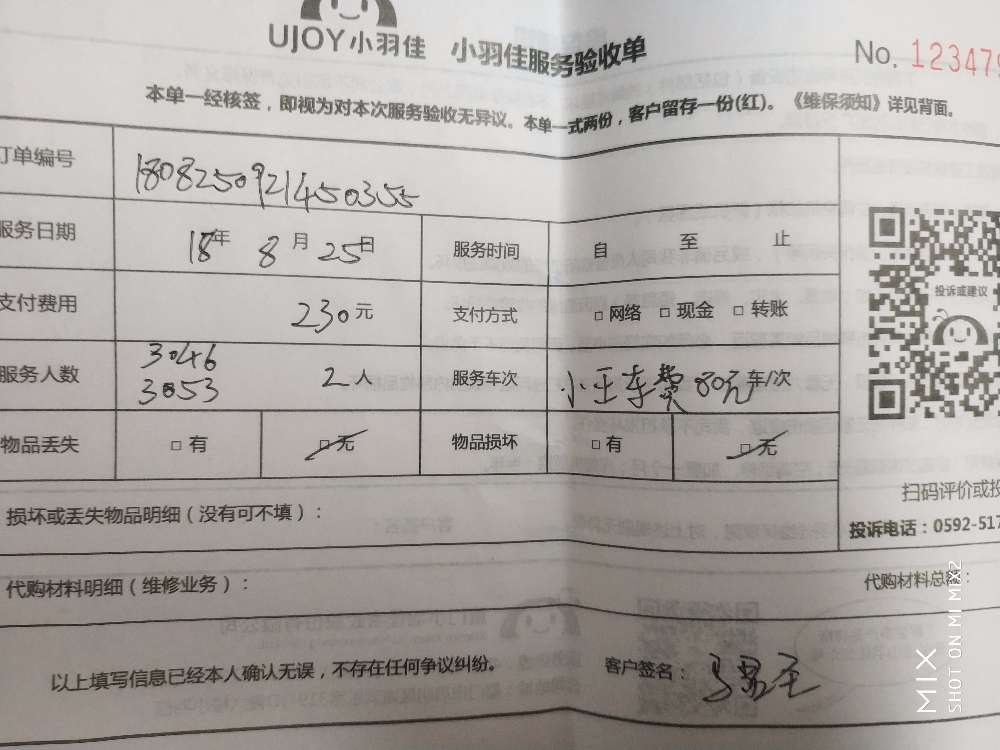 UJOY小羽佳 小羽佳服务验收单 No. 123479
本单一经核签，即视为对本次服务验收无异议。本单一式两份，客户留存一份(红)。《维保须知》详见背面。
订单编号 180825092145035 5
服务日期 18年 8月 25日 服务时间 自 至 止
支付费用 230元 支付方式 □网络 □现金 □转账
服务人数 3046 3053 2人 服务车次 小王车费80元 车/次
物品丢失 □有 □无 物品损坏 □有 □无
投诉或建议
扫码评价或投
损坏或丢失物品明细（没有可不填）：
投诉电话：0592-517
代购材料明细（维修业务）： 代购材料总额：
以上填写信息已经本人确认无误，不存在任何争议纠纷。 客户签名：
MIX
SHOT ON MI MIX2